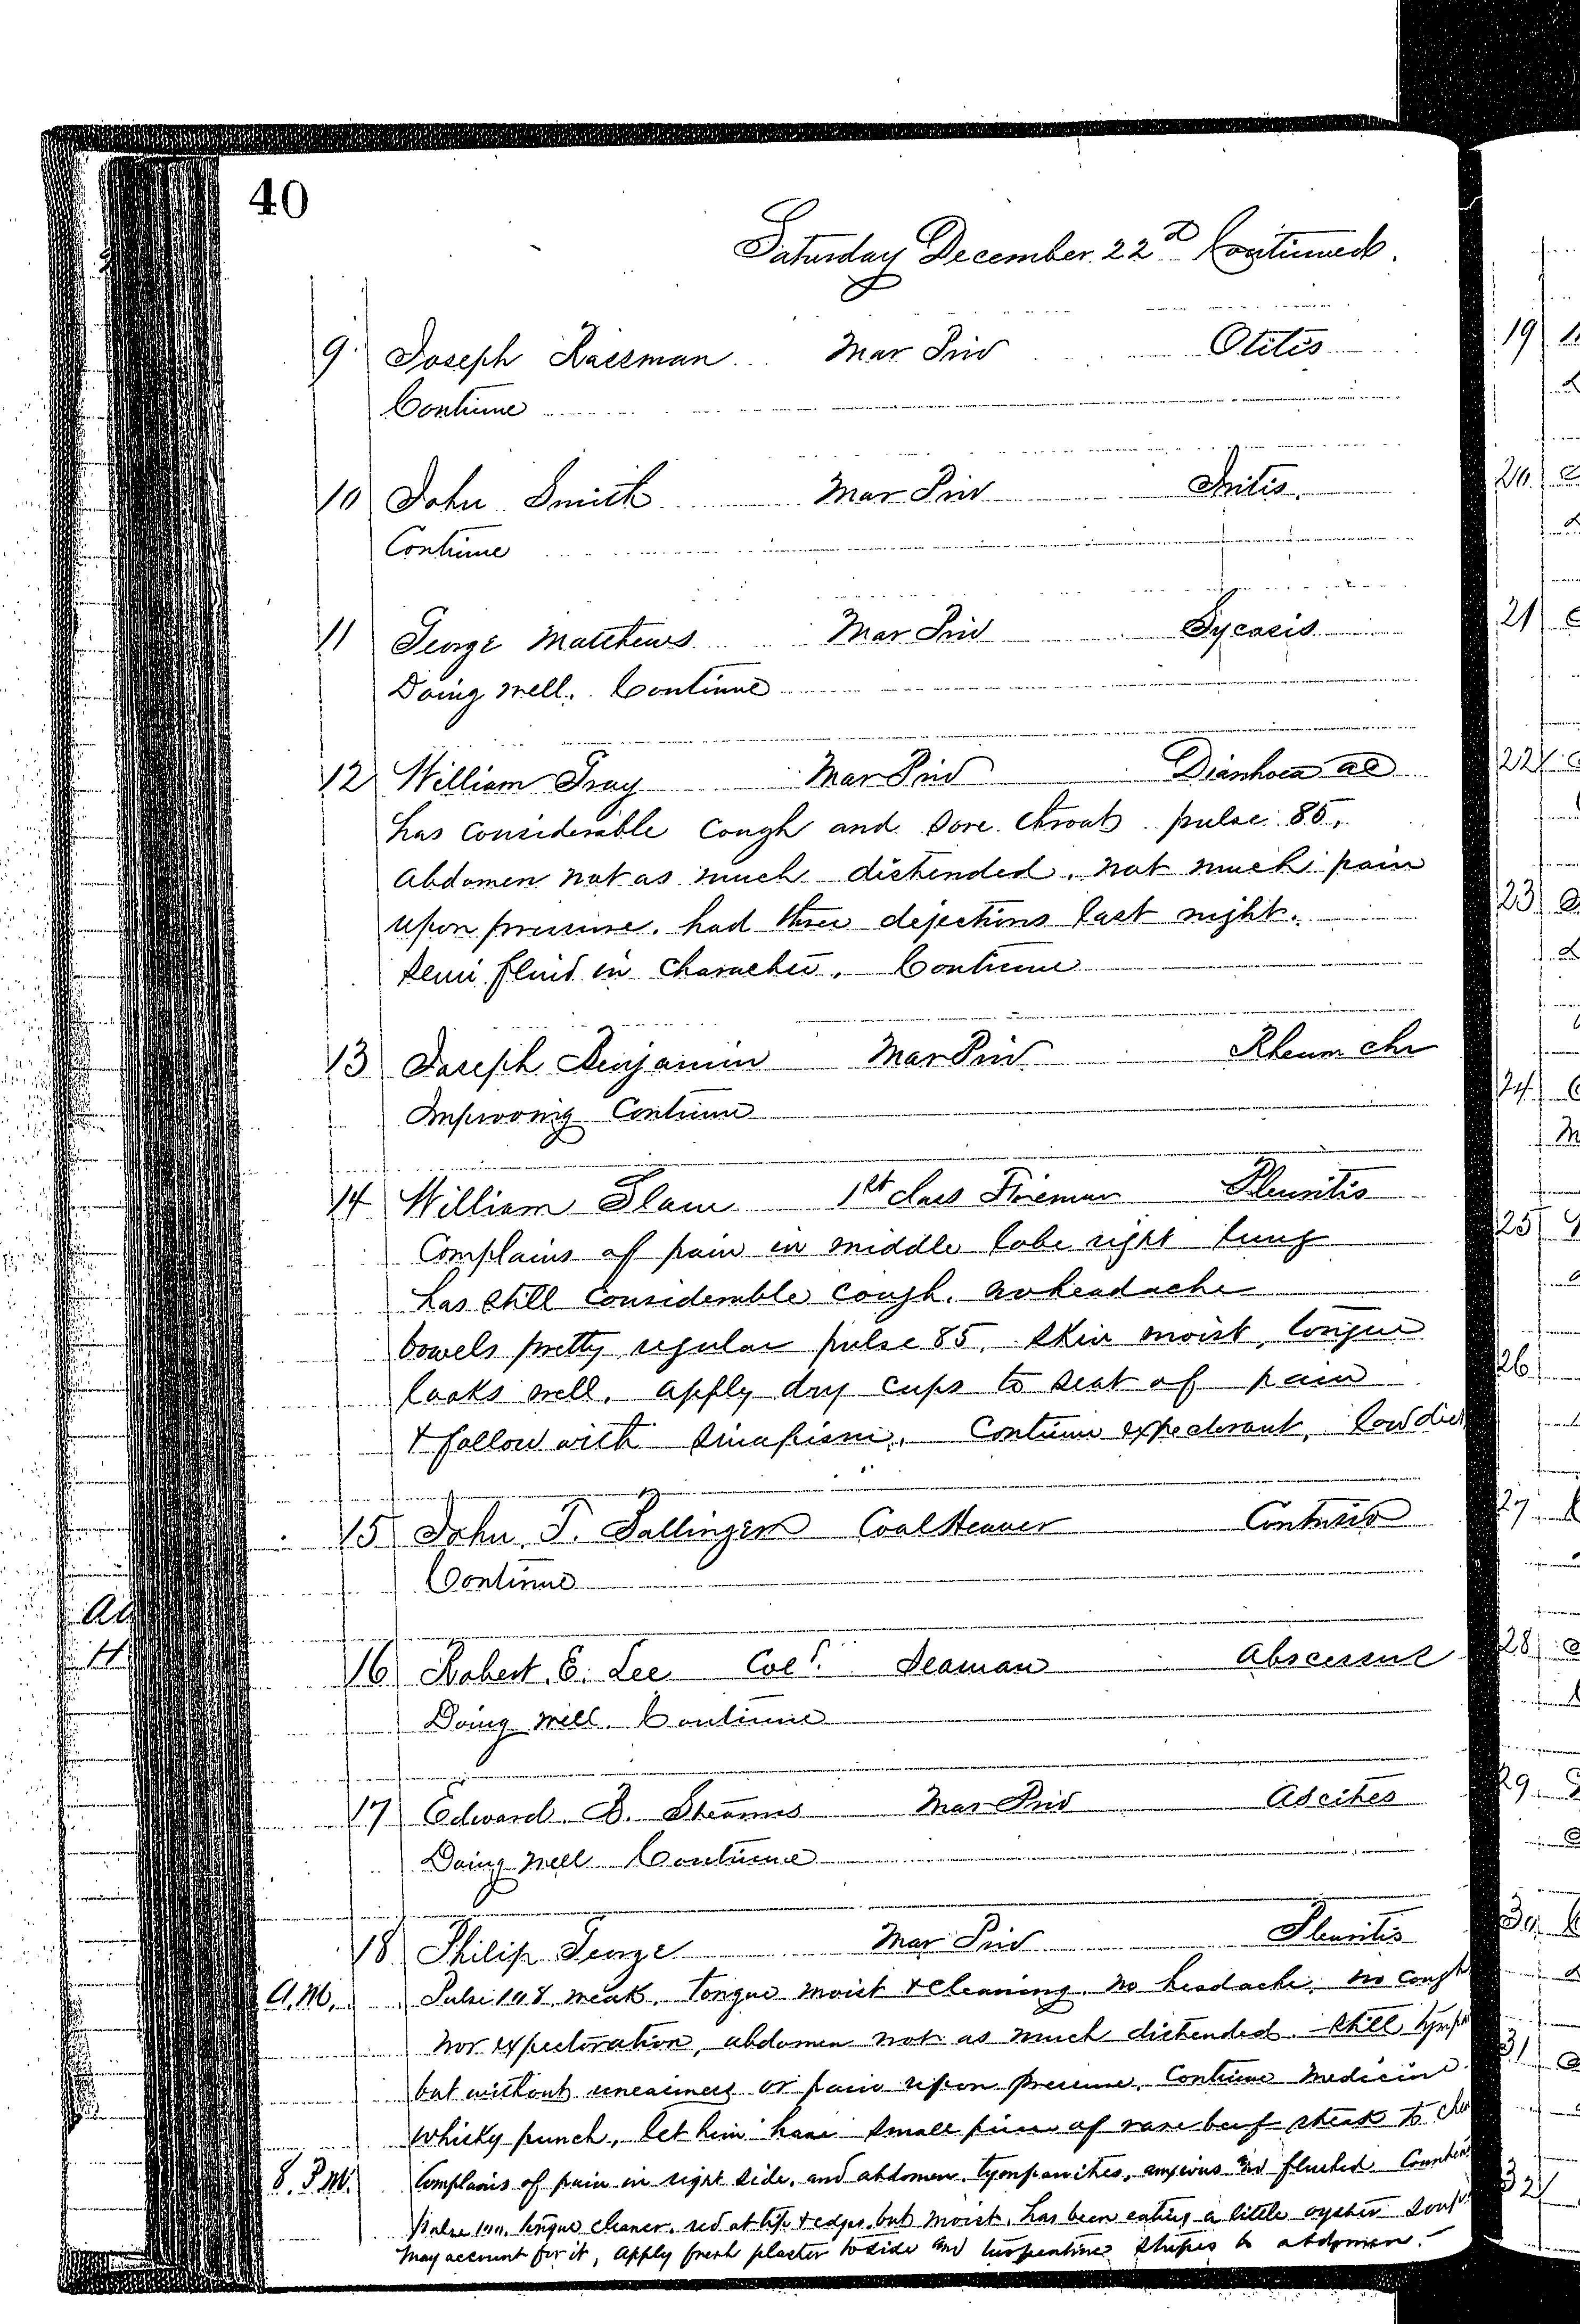 40
Saturday December 22d Continued.
9 Joseph Rassman Mar Priv Otitis
Continue
10 John Smith Mar Priv Iritis.
Continue
11 George Matthews Mar Priv Sycosis
Doing well. Continue
12 William Gray Mar Priv Diarrhoea ac
has considerable cough and sore throat. pulse 85,
abdomen not as much distended, not much pain
upon pressure. had three dejections last night.
semi fluid in character. Continue
13 Joseph Benjamin Mar Priv Rheum chr
Improving Continue
14 William 1st class Fireman Pleuritis
Complains of pain in middle lobe right lung
has still considerable cough. no headache
bowels pretty regular pulse 85, skin moist, tongue
looks well. apply dry cups to seat of pain
& follow with sinapism. Continue expectorant, low diet
15 John T. Coal Heaver Contusio
Continue
16 Robert. E. Lee Col'd. Seaman Abscessus
Doing well. Continue
17 Edward. B. Stearns Mar Priv Ascites
Doing well Continue
18 Philip George Mar Priv Pleuritis
A.M. Pulse 108, weak. Tongue moist & cleaning. no headache, no cough
nor expectoration, abdomen not as much distended. still
but without uneasiness or pain upon pressure. Continue medicine
whisky punch, let him have small piece of rare beef steak to
8. P.M. Complains of pain in right side, and abdomen. tympanites, anxious and flushed
Pulse tongue cleaner. red at tip & edges, but moist. has been eating a little oyster soup
may account for it, apply fresh plaster to side and turpentine stupes to abdomen.
Ad
H
19
20
21
22
23
24
25
26
27
28
29
30
31
32